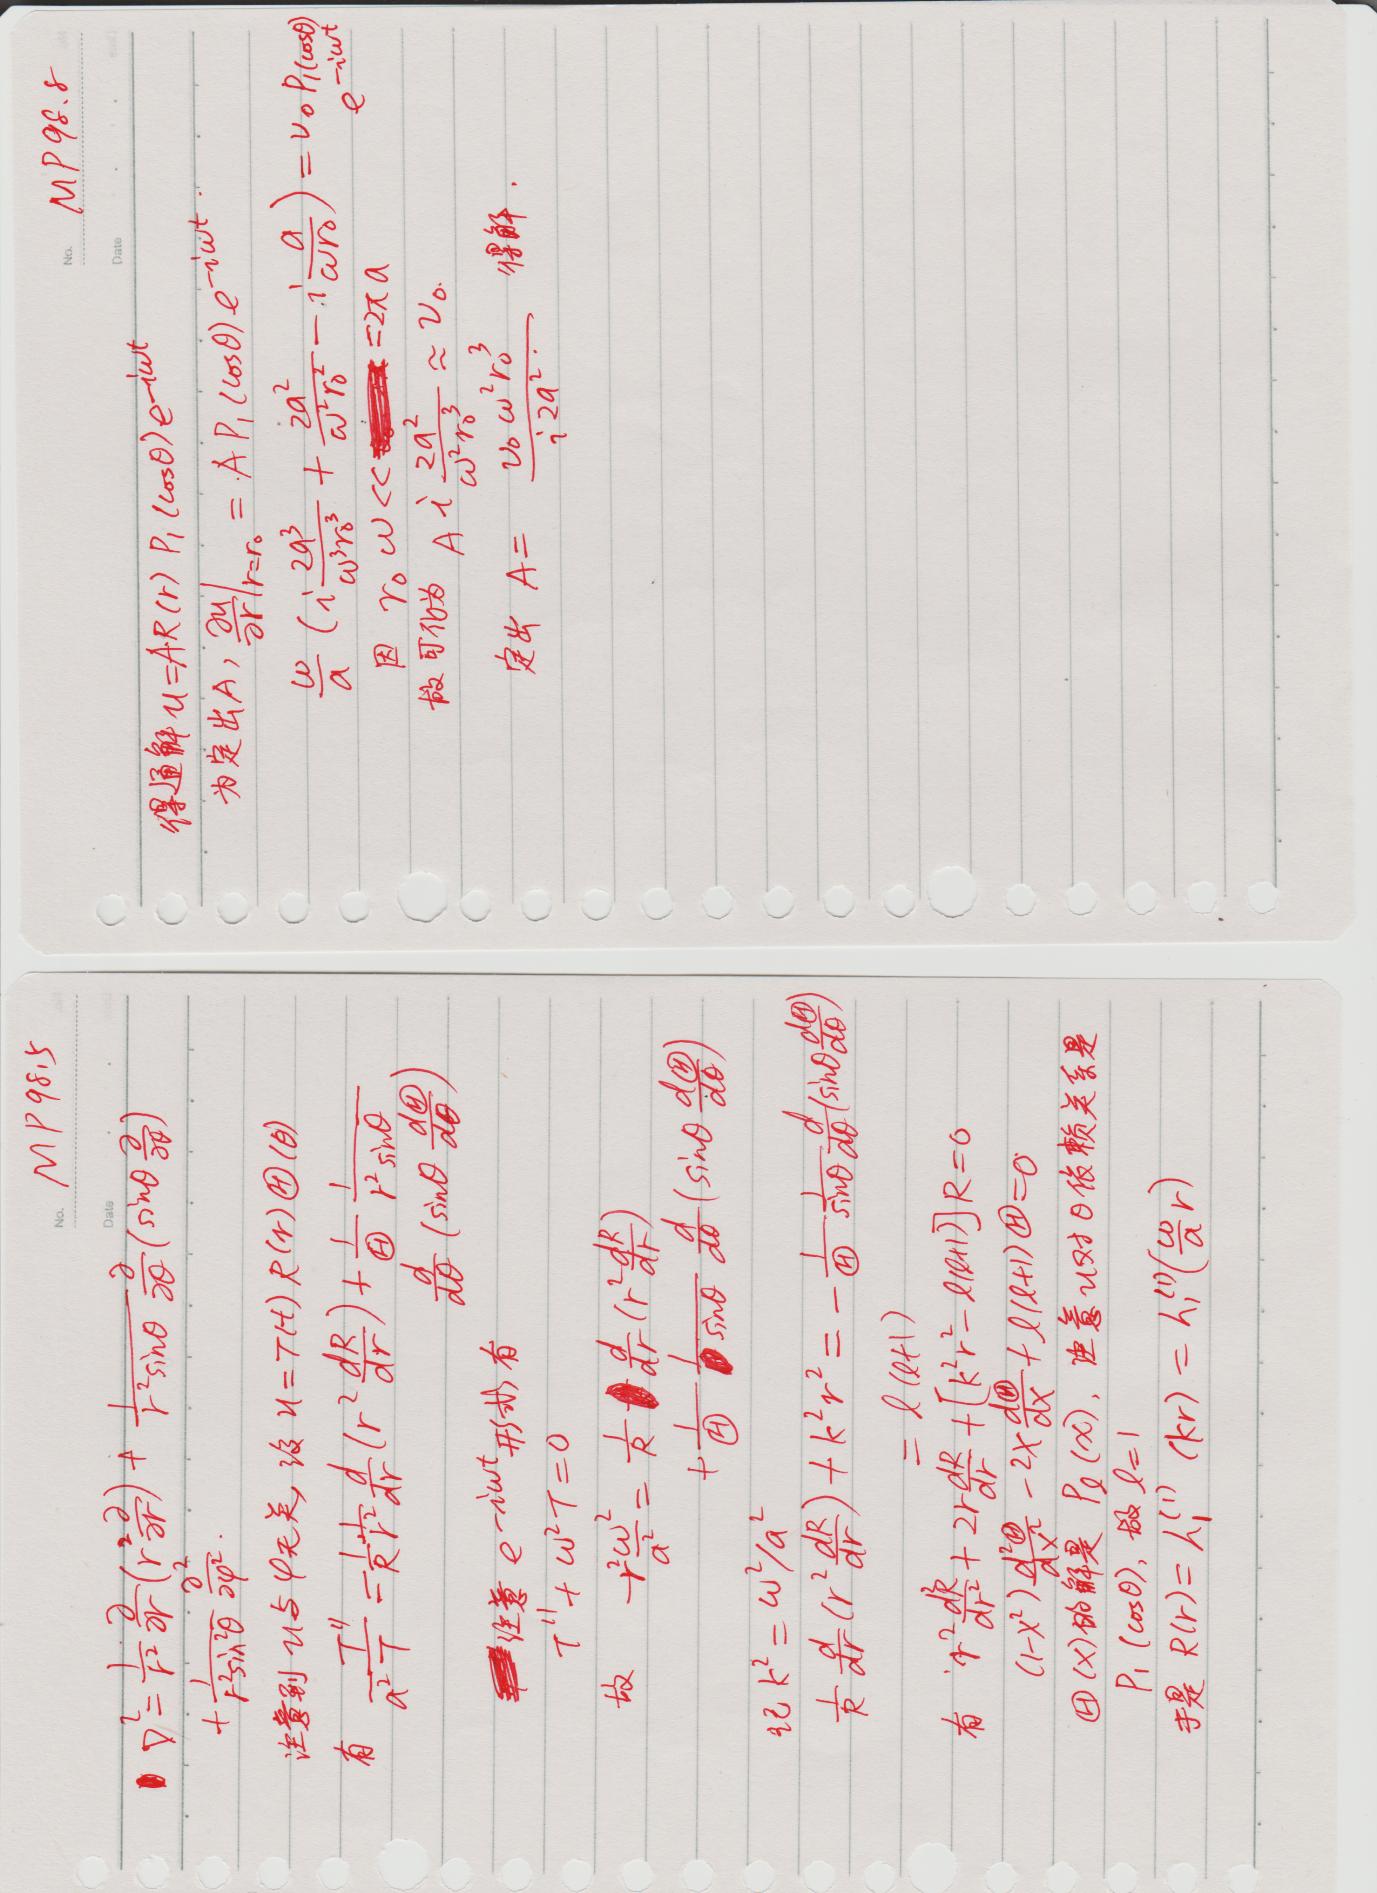 No. MP98.5
Date
∇² = 1/r² ∂/∂r (r² ∂/∂r) + 1/(r² sinθ) ∂/∂θ (sinθ ∂/∂θ)
+ 1/(r² sin²θ) ∂²/∂φ².
注意到 u与φ无关, 设 u = T(t) R(r) Θ(θ)
有 T''/(a² T) = 1/R 1/r² d/dr (r² dR/dr) + 1/Θ 1/(r² sinθ)
d/dθ (sinθ dΘ/dθ)
注意 e^{-iωt} 形式, 有
T'' + ω² T = 0
故 -r² ω²/a² = 1/R d/dr (r² dR/dr)
+ 1/Θ 1/sinθ d/dθ (sinθ dΘ/dθ)
记 k² = ω²/a²
1/R d/dr (r² dR/dr) + k² r² = - 1/Θ 1/sinθ d/dθ (sinθ dΘ/dθ)
= l(l+1)
有 r² d²R/dr² + 2r dR/dr + [k² r² - l(l+1)] R = 0
(1-x²) d²Θ/dx² - 2x dΘ/dx + l(l+1) Θ = 0
Θ(x) 的解是 P_l(x), 注意u对θ依赖关系是
P₁(cosθ), 故 l=1
于是 R(r) = h₁^{(1)} (kr) = h₁^{(1)} (ω/a r)
No. MP98.8
Date
得通解 u = A R(r) P₁(cosθ) e^{-iωt}
为定出A, ∂u/∂r|_{r=r₀} = A P₁(cosθ) e^{-iωt}.
ω/a (i 2a³/(ω³r₀³) + 2a²/(ω²r₀²) - i a/(ωr₀)) = v₀ P₁(cosθ)
e^{-iωt}
因 r₀ω << = 2πa
故可化为 A i 2a²/(ω²r₀³) ≈ v₀.
定出 A = v₀ω²r₀³/(i2a²) 得解.